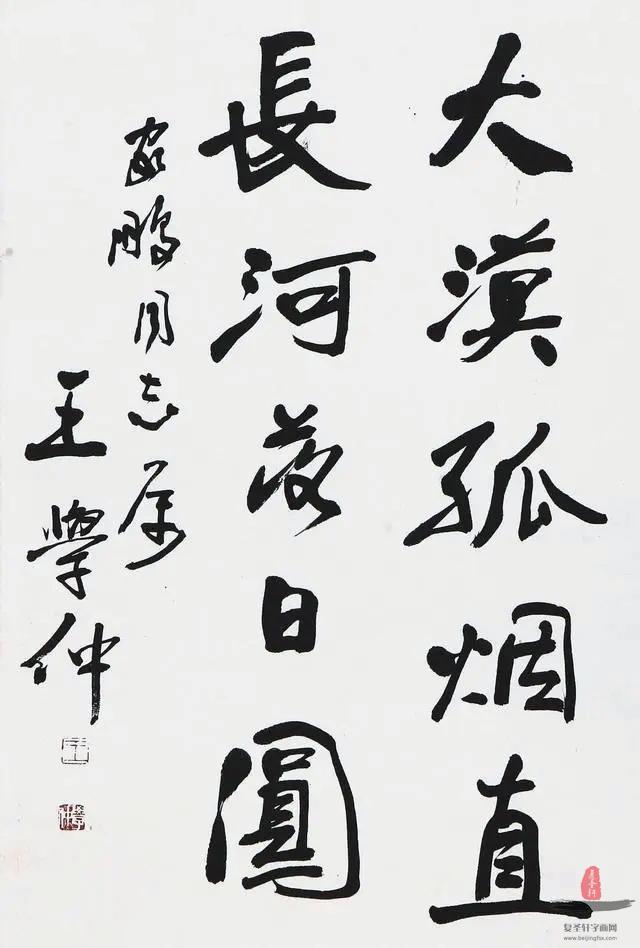 大漠孤烟直
長河落日圓
家鵬同志属
王學仲
复圣轩字画网
www.beijingfsx.com